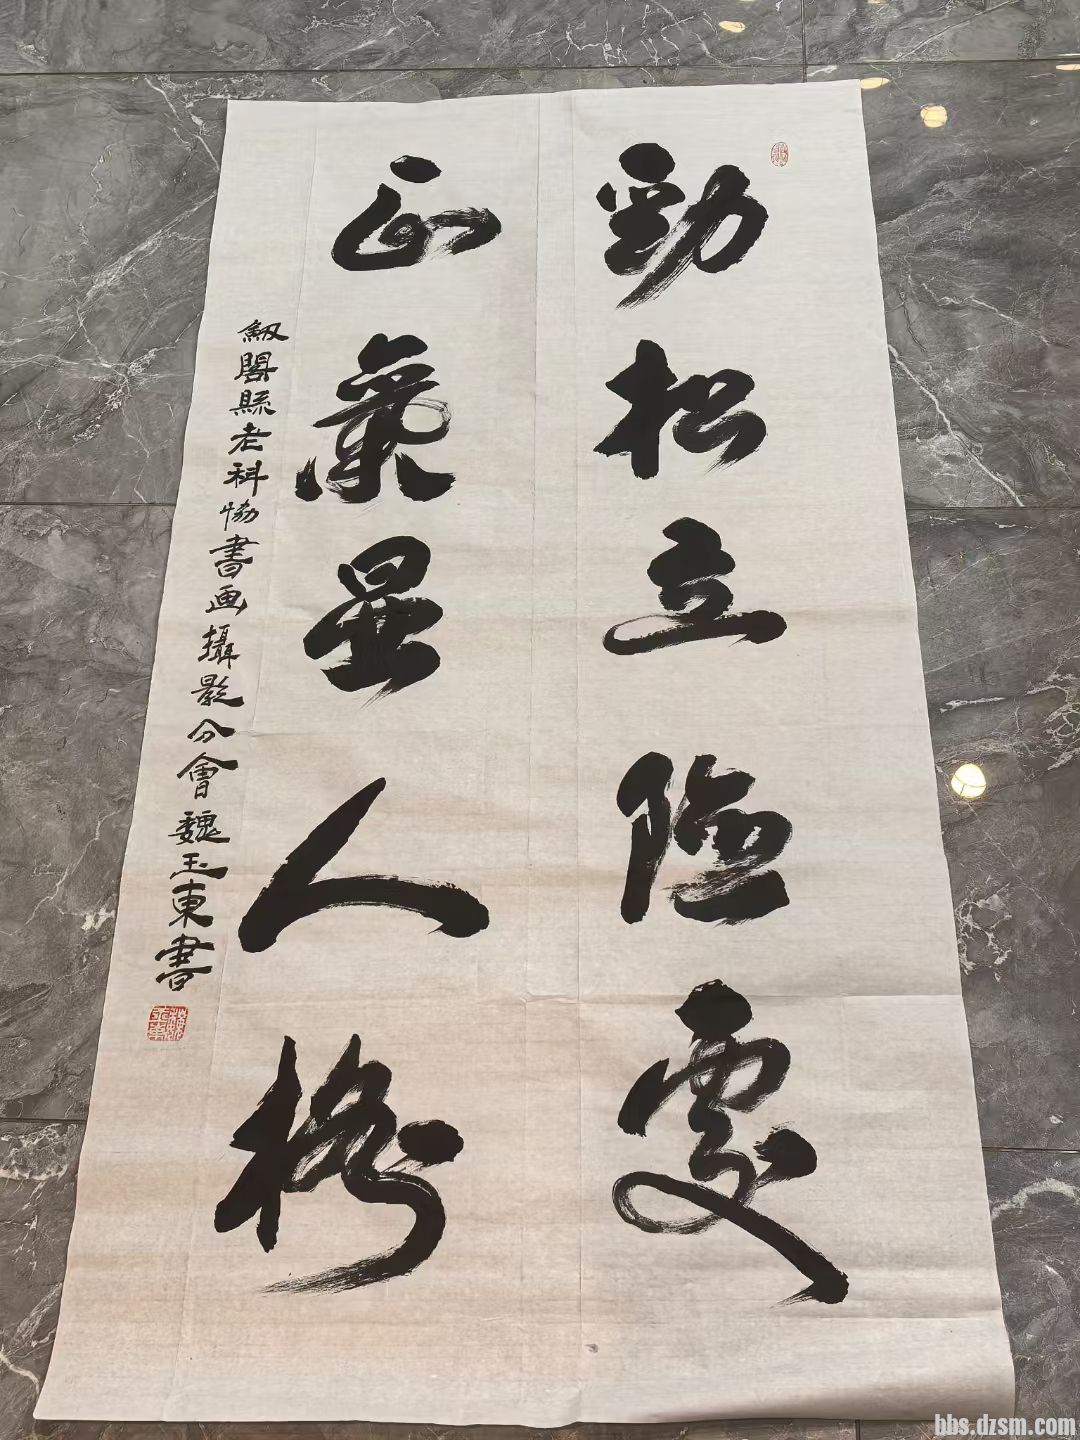 勁松立險處
正氣显人格
劔閣縣老科協書画攝影分會魏玉東書
bbs.dzsm.com